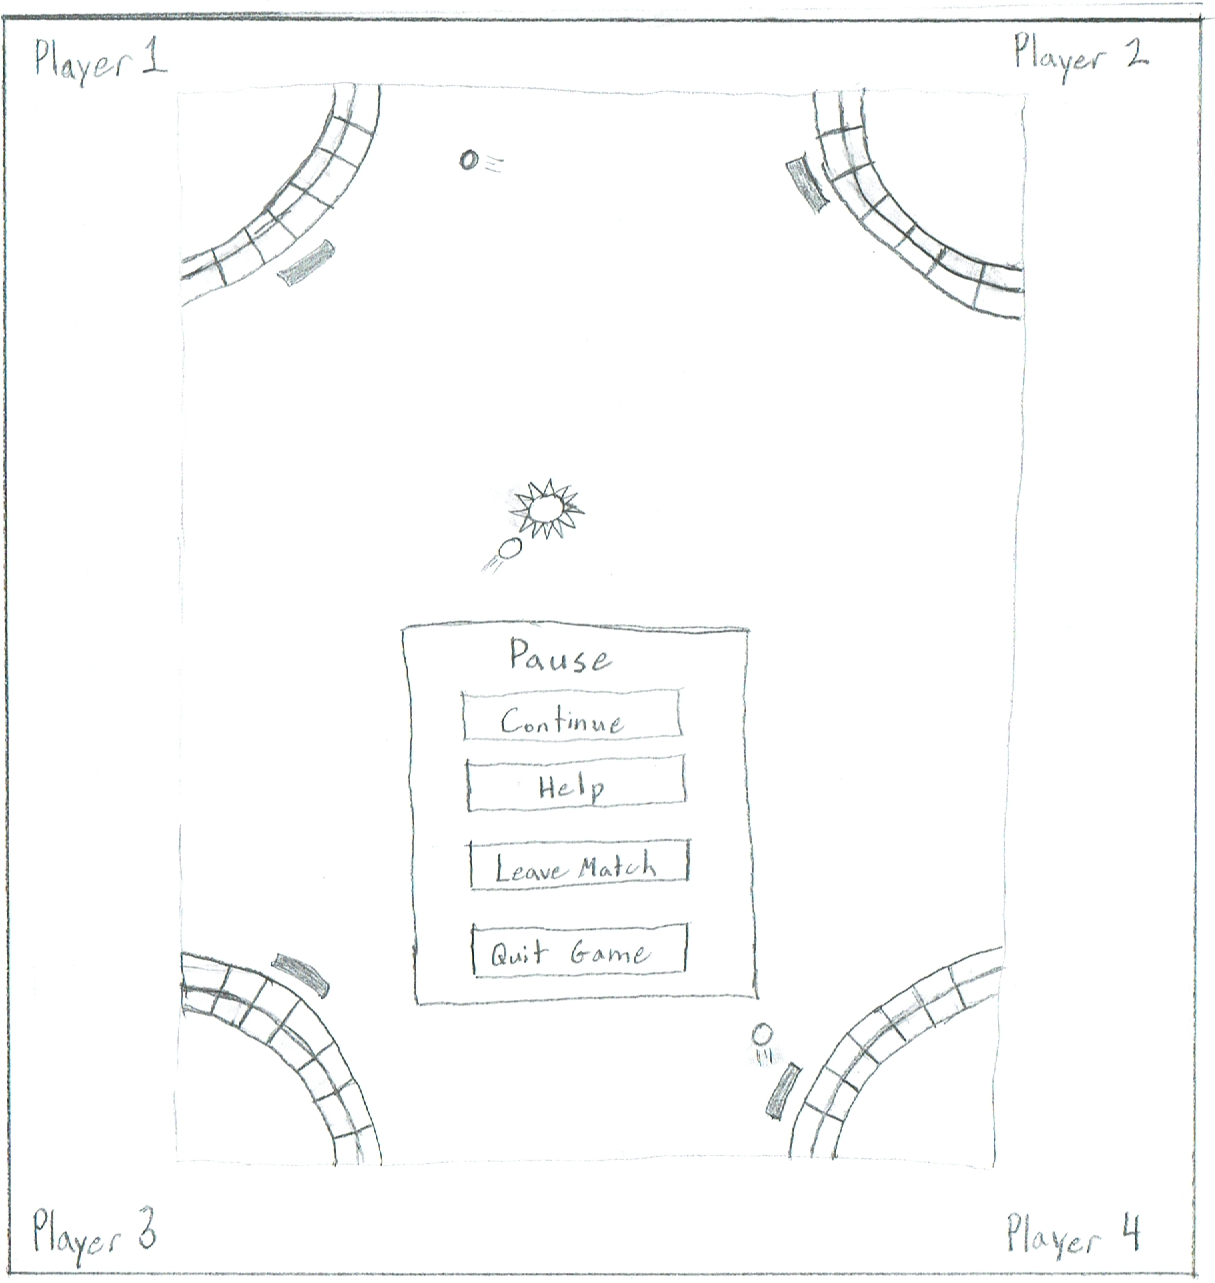 Player 1
Player 2
Pause
Continue
Help
Leave Match
Quit Game
Player 3
Player 4